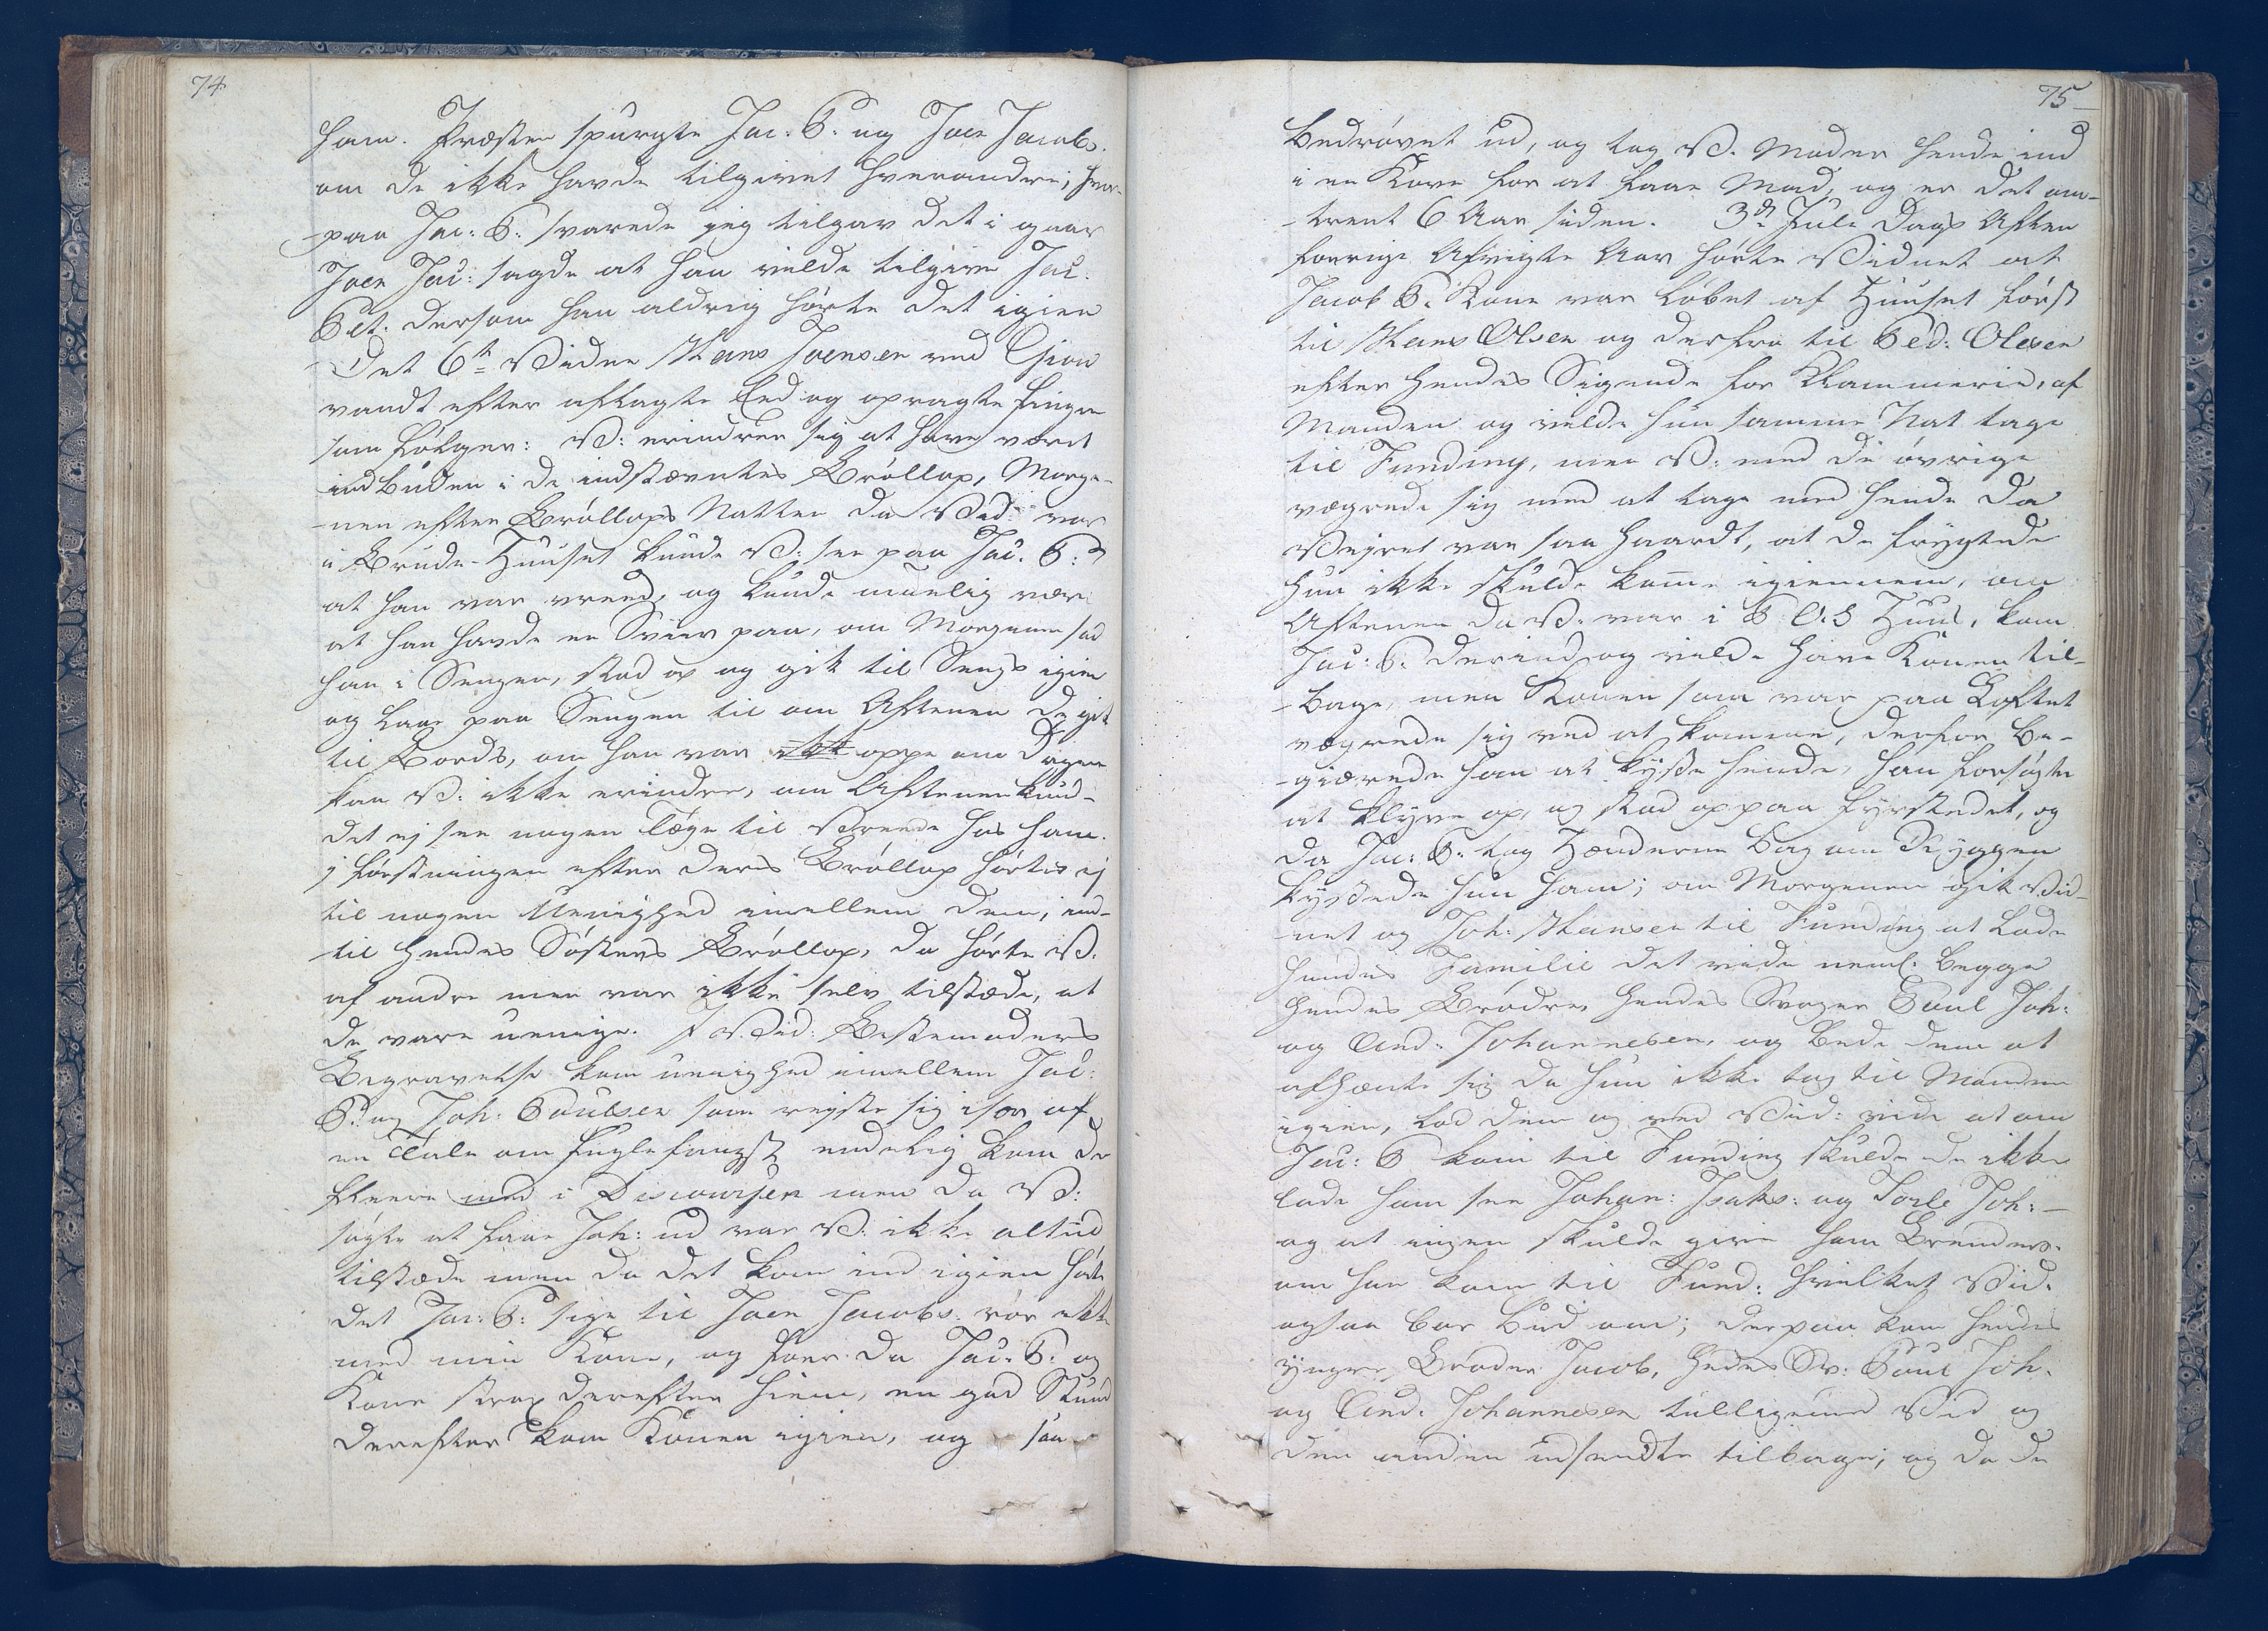 74
ham. Præsten spurgte Jac: P: og Joen Jacobs.
om de ikke havde tilgivet hverandre; hvor-
-paa Jac: P: svarede jeg tilgav det i gaar
Joen Jac: sagde at han vilde tilgive Jac:
P et. dersom han aldrig hørte det igien
Det 6te Vidne Hans Joensen ved Gion
vandt efter aflagte Eed og opragte finger
som følger: V: erindrer sig at have været
indbuden i de indstævntes Brøllop, Morge-
-nen efter Brøllops Natten da Vid: var
i Brude-Huuset kunde V: see paa Jac. P:
at han var vreed, og kunde muelig være
at han havde en Sviir paa, om Morgenen sad
han i Sengen, stod op og gik til Sengs igien
og laae paa Sengen til om Aftenen de gik
til Bords, om han var ikke oppe om Dagen
kan V: ikke erindre, om Aftenen kund-
det ej see nogen Tegn til Vrede hos ham.
j førstningen efter deres Brøllop hørtes ej
til nogen Uenighed imellem dem, ind-
-til hendes Søsters Brøllop, da hørte V.
af andre men var ikke selv tilstæde, at
de vare uenige. I Vid: Bestemoders
Begravelse kom uenighed imellem Jac:
P: og Joh: Poulsen som rejste sig især af
en Tale om fuglefangst endelig kom de
fleere med i Discoursen men da V:
søgte at faae Joh: ud var V: ikke altiid
tilstæde men da det kom ind igien hørte
det Jac: P: sige til Joen Jacobs: rør ikke
med min Kone, og foer da Jac: P: og
Kone strax derefter hiem, en god Stund
derefter kom Konen igien, og saa
75
bedrøvet ud, og tog V. Moder hende ind
i en Kove for at faae Mad, og er det om-
-trent 6 Aar siden. 3die Jule Dags Aften
forrige Afvigte Aar hørte Vidnet at
Jacob P: Kone var løbet af Huuset først
til Hans Olsen og derfra til Ped: Olesen
efter hendes Sigende for Klammerie, af
Manden og vilde hun samme Nat tage
til Funding, men V: med de øvrige
vægrede sig med at tage med hende da
Vejret var saa haardt, at de frygtede
hun ikke skulde komme igiennem, om
Aftenen da V. var i P. O.s Huus, kom
Jac: P. derind og vilde have Konen til-
-bage, men Konen som var paa Loftet
vægrede sig ved at komme, derfor be-
-gierede han at kysse hende, han forsøgte
at klyve op, og stod op paa fyrstedet, og
da Jac: P: tog Hænderne bag om Ryggen
kyssede hun ham; om Morgenen gik Vid-
-net og Joh: Hansen til Funding at lade
hendes Familie det vide neml: begge
hendes Brødre, hendes Svoger Poul Joh:
og And: Johannesen, og bede dem at
afhente sig da hun ikke tog til Manden
igien, lod dem og ved Vid: vide at om
Jac: P kom til Funding skulde de ikke
lade ham see Johan: Isaks: og Torle Joh: -
og at ingen skulde give ham Brendev:
om han kom til Fund: hvilket Vid:
ogsaa bar bud om; derpaa kom hendes
yngre Broder Jacob, hedes Sv: Poul Joh.
og And: Johannesen tilligemed Vid og
den anden udsendte tilbage, og da de